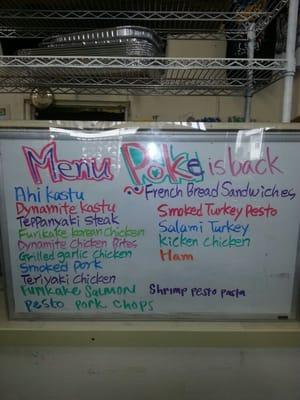 Menu Poke is back
Ahi kastu
Dynamite kastu
Teppanyaki steak
Furikake korean chicken
Dynamite chicken Bites
Grilled garlic chicken
Smoked pork
Teriyaki chicken
Furikake Salmon
Pesto pork chops
French Bread Sandwiches
Smoked Turkey Pesto
Salami Turkey
Kicken chicken
Ham
Shrimp pesto pasta